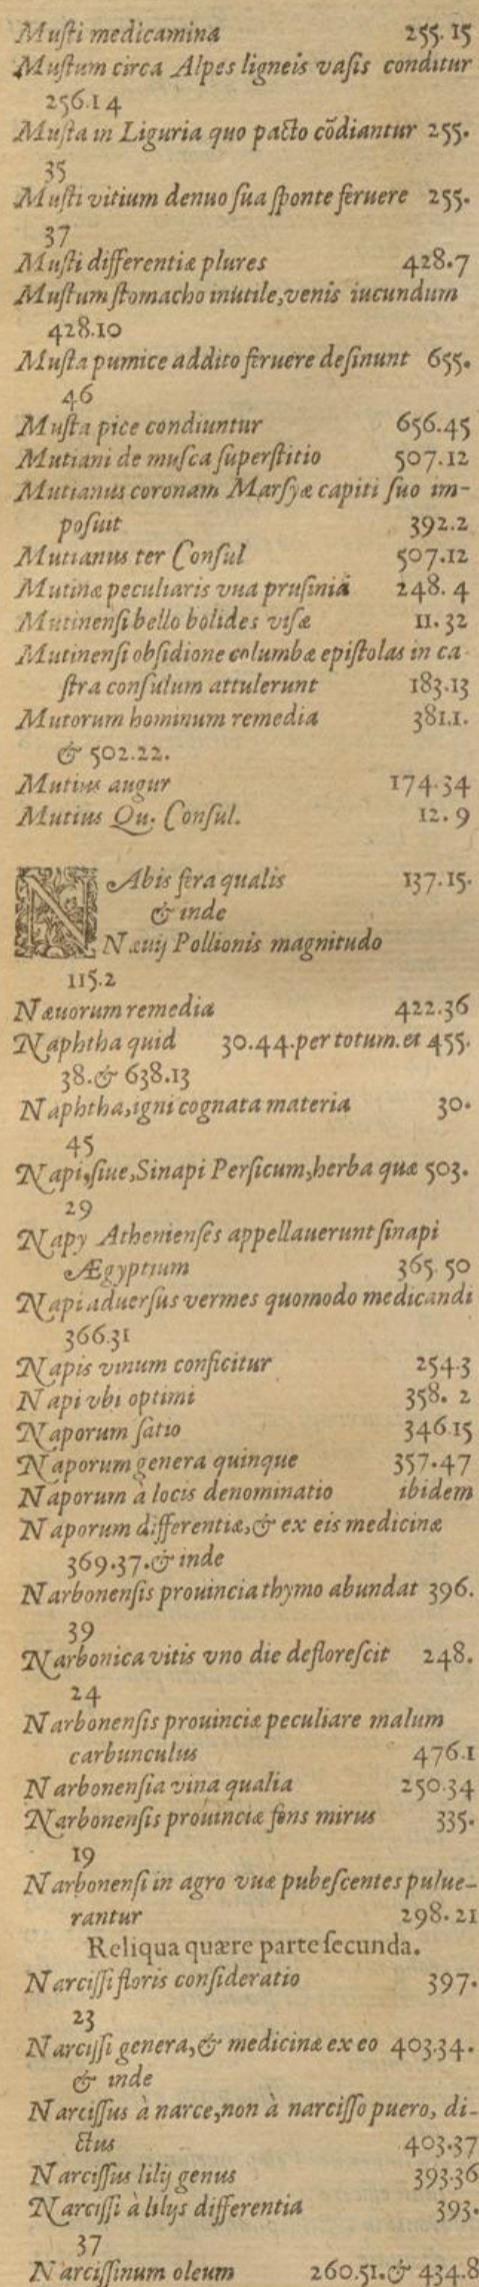 Muſti medicamina 255.15
Muſtum circa Alpes ligneis vaſis conditur
256.14
Muſta in Liguria quo pacto cõdiantur 255.
35
Muſti vitium denuo ſua ſponte feruere 255.
37
Muſti differentiæ plures 428.7
Muſtum ſtomacho inutile,venis iucundum
428.10
Muſta pumice addito feruere deſinunt 655.
46
Muſta pice condiuntur 656.45
Mutiani de muſca ſuperſtitio 507.12
Mutianus coronam Marſyæ capiti ſuo im-
poſuit 392.2
Mutianus ter Conſul 507.12
Mutinæ peculiaris vua pruſiniã 248.4
Mutinenſi bello bolides viſæ 11.32
Mutinenſi obſidione columbæ epiſtolas in ca-
ſtra conſulum attulerunt 183.13
Mutorum hominum remedia 381.1.
& 502.22.
Mutius augur 174.34
Mutius Qu. Conſul. 12.9
NAbis fera qualis 137.15.
& inde
Næuij Pollionis magnitudo
115.2
Næuorum remedia 422.36
Naphtha quid 30.44.per totum.et 455.
38.& 638.13
Naphtha,igni cognata materia 30.
45
Napi,ſiue,Sinapi Perſicum,herba quæ 503.
29
Napy Athenienſes appellauerunt ſinapi
Ægyptium 365.50
Napi aduerſus vermes quomodo medicandi
366.31
Napis vinum conficitur 254.3
Napi vbi optimi 358.2
Naporum ſatio 346.15
Naporum genera quinque 357.47
Naporum à locis denominatio ibidem
Naporum differentiæ,& ex eis medicinæ
369.37.& inde
Narbonenſis prouincia thymo abundat 396.
39
Narbonica vitis vno die defloreſcit 248.
24
Narbonenſis prouinciæ peculiare malum
carbunculus 476.1
Narbonenſia vina qualia 250.34
Narbonenſis prouinciæ fons mirus 335.
19
Narbonenſi in agro vuæ pubeſcentes pulue-
rantur 298.21
Reliqua quære parte ſecunda.
Narciſſi floris conſideratio 397.
23
Narciſſi genera,& medicinæ ex eo 403.34.
& inde
Narciſſus à narce,non à narciſſo puero, di-
ctus 403.37
Narciſſus lilij genus 393.36
Narciſſi à lilijs differentia 393.
37
Narciſſinum oleum 260.51.& 434.8